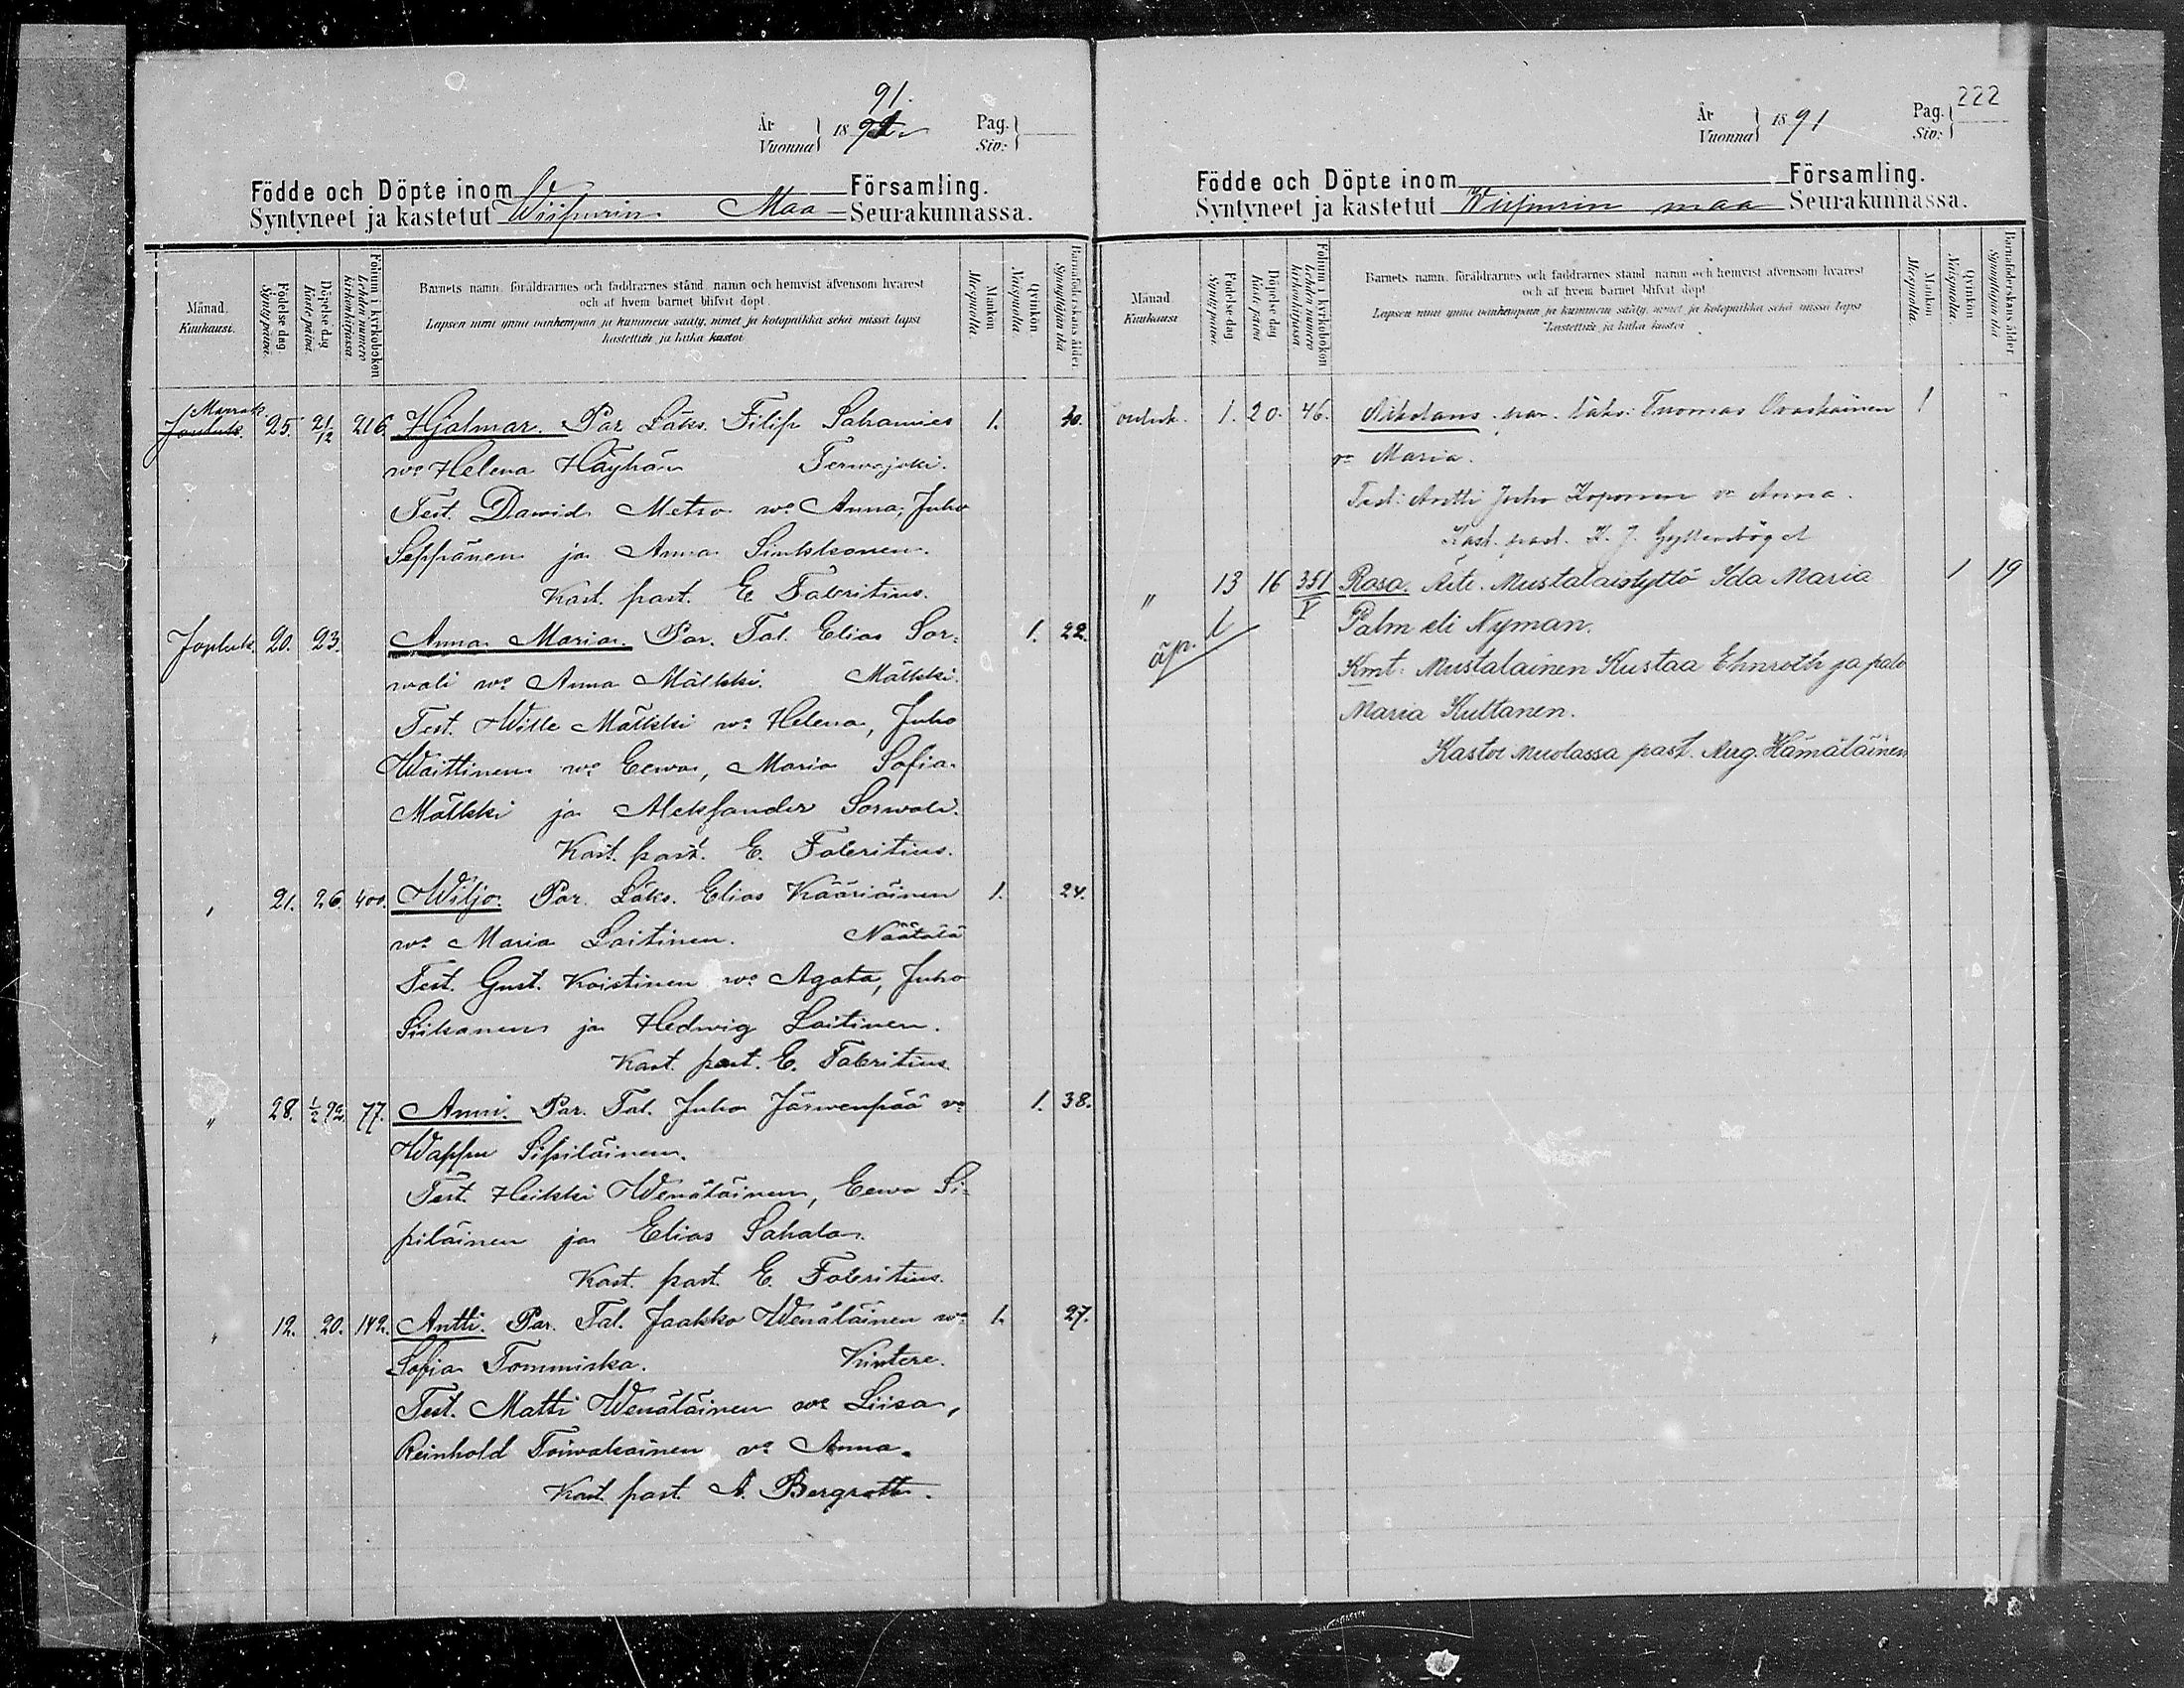 91.
År
Vuonna
18 91
Pag.
Siv:
Födde och Döpte inom Församling.
Syntyneet ja kastetut Wiipurin Maa Seurakunnassa.
Månad.
Kuukausi.
Födelse dag
Syntypäivä.
Döpelse dag
Kaste päivä
Folium i kyrkoboken
Lehden numero kirkonkirjassa
Barnets namn, föräldrarnes och faddrarnes stånd, namn och hemvist äfvensom hvarest
och af hvem barnet blifvit döpt.
Lapsen nimi ynnä vanhempain ja kummein sääty, nimet ja kotopaikka sekä missä lapsi
kastettiin ja kuka kastoi
Mankön
Miespuolta.
Qvinkön.
Naispuolta.
Barnaföderskans ålder.
Synnyttäjän ikä
Marrask.
Jouluk. 25. 21/12 216. Hjalmar. Par. Läks. Filip Sahamies 1. 40.
wo Helena Häyhän Terwajoki.
Test. Dawid Metso wo Anna, Juho
Seppänen ja Anna Sinkkonen.
Kast. past. E. Fabritius.
Jouluk. 20. 23. Anna Maria. Par. Tal. Elias Sor- 1. 22.
wali wo Anna Mälkki. Mälkki.
Test. Wille Mälkki wo Helena, Juho
Waittinen wo Eewa, Maria Sofia
Mälkki ja Aleksander Sorwali.
Kast. past. E. Fabritius.
" 21. 26. 400. Wiljo. Par. Läks. Elias Kääriäinen 1. 24.
wo Maria Laitinen. Näätälä
Test. Gust. Koistinen wo Agata, Juho
Siikanen ja Hedwig Laitinen.
Kast. past. E. Fabritius.
" 28. 1/2 92. 77. Anni. Par. Tal. Juho Järwenpää wo 1. 38.
Wappu Sipiläinen.
Test. Heikki Wenäläinen, Eewa Si-
piläinen ja Elias Sahala.
Kast. past. E. Fabritius.
" 12. 20. 142. Antti. Par. Tal. Jaakko Wenäläinen wo 1. 27.
Sofia Tommiska. Kintere.
Test. Matti Wenäläinen wo Liisa,
Reinhold Toiwakainen wo Anna.
Kast. past. A. Bergroth.
222
År
Vuonna
18 91
Pag.
Siv:
Födde och Döpte inom Församling.
Syntyneet ja kastetut Wiipurin maa Seurakunnassa.
Månad
Kuukausi
Födelse dag
Syntypäivä.
Döpelse dag
Kaste päivä
Folium i kyrkoboken
Lehden numero kirkonkirjassa
Barnets namn, föräldrarnes och faddrarnes stånd, namn och hemvist äfvensom hvarest
och af hvem barnet blifvit döpt
Lapsen nimi ynnä vanhempain ja kummein sääty, nimet ja kotopaikka sekä missä lapsi
kastettiin ja kuka kastoi
Mankön
Miespuolta.
Qvinkön
Naispuolta.
Barnaföderskans ålder.
Synnyttäjän ikä
ouluk. 1. 20. 46. Nikolaus. par. läks: Tuomas Oraskainen 1
vo Maria.
Test: Antti Juho Koponen vo Anna.
Kast. past. K. J. Gyllenbögel
" 13 16 351/V Rosa. Äiti. Mustalaistyttö Ida Maria 1 19
äp. Palm eli Nyman.
Kmt: Mustalainen Kustaa Ehnroth ja palv
Maria Kuttanen.
Kastoi Muolassa past. Aug. Hämäläinen